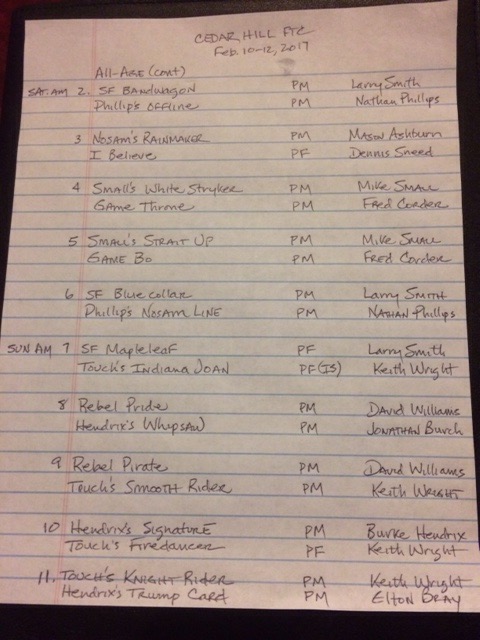 CEDAR HILL FTC
Feb. 10-12, 2017
All-Age (cont)
SAT. AM 2. SF BANDWAGON PM Larry Smith
Phillip's OFFline PM Nathan Phillips
3 Nosam's RAINMAKER PM MASON Ashburn
I Believe PF Dennis Sneed
4 Small's White Stryker PM Mike SMALL
GAME Throne PM FRED Corder
5 SMALL'S STRAIT UP PM Mike SMALL
GAME BO PM FRED Corder
6 SF Blue Collar PM Larry SMITH
Phillip's NOSAM LINE PM NATHAN Phillips
SUN AM 7 SF Mapleleaf PF Larry Smith
Touch's Indiana JOAN PF(IS) Keith Wright
8 Rebel Pride PM David Williams
Hendrix's Whipsaw PM JONATHAN Burch
9 Rebel Pirate PM David Williams
Touch's Smooth Rider PM Keith WRIGHT
10 Hendrix's SIGNATURE PM Burke Hendrix
Touch's Firedancer PF Keith Wright
11. TOUCH'S KNIGHT RIDER PM Keith Wright
Hendrix's Trump CARD PM Elton BRAY